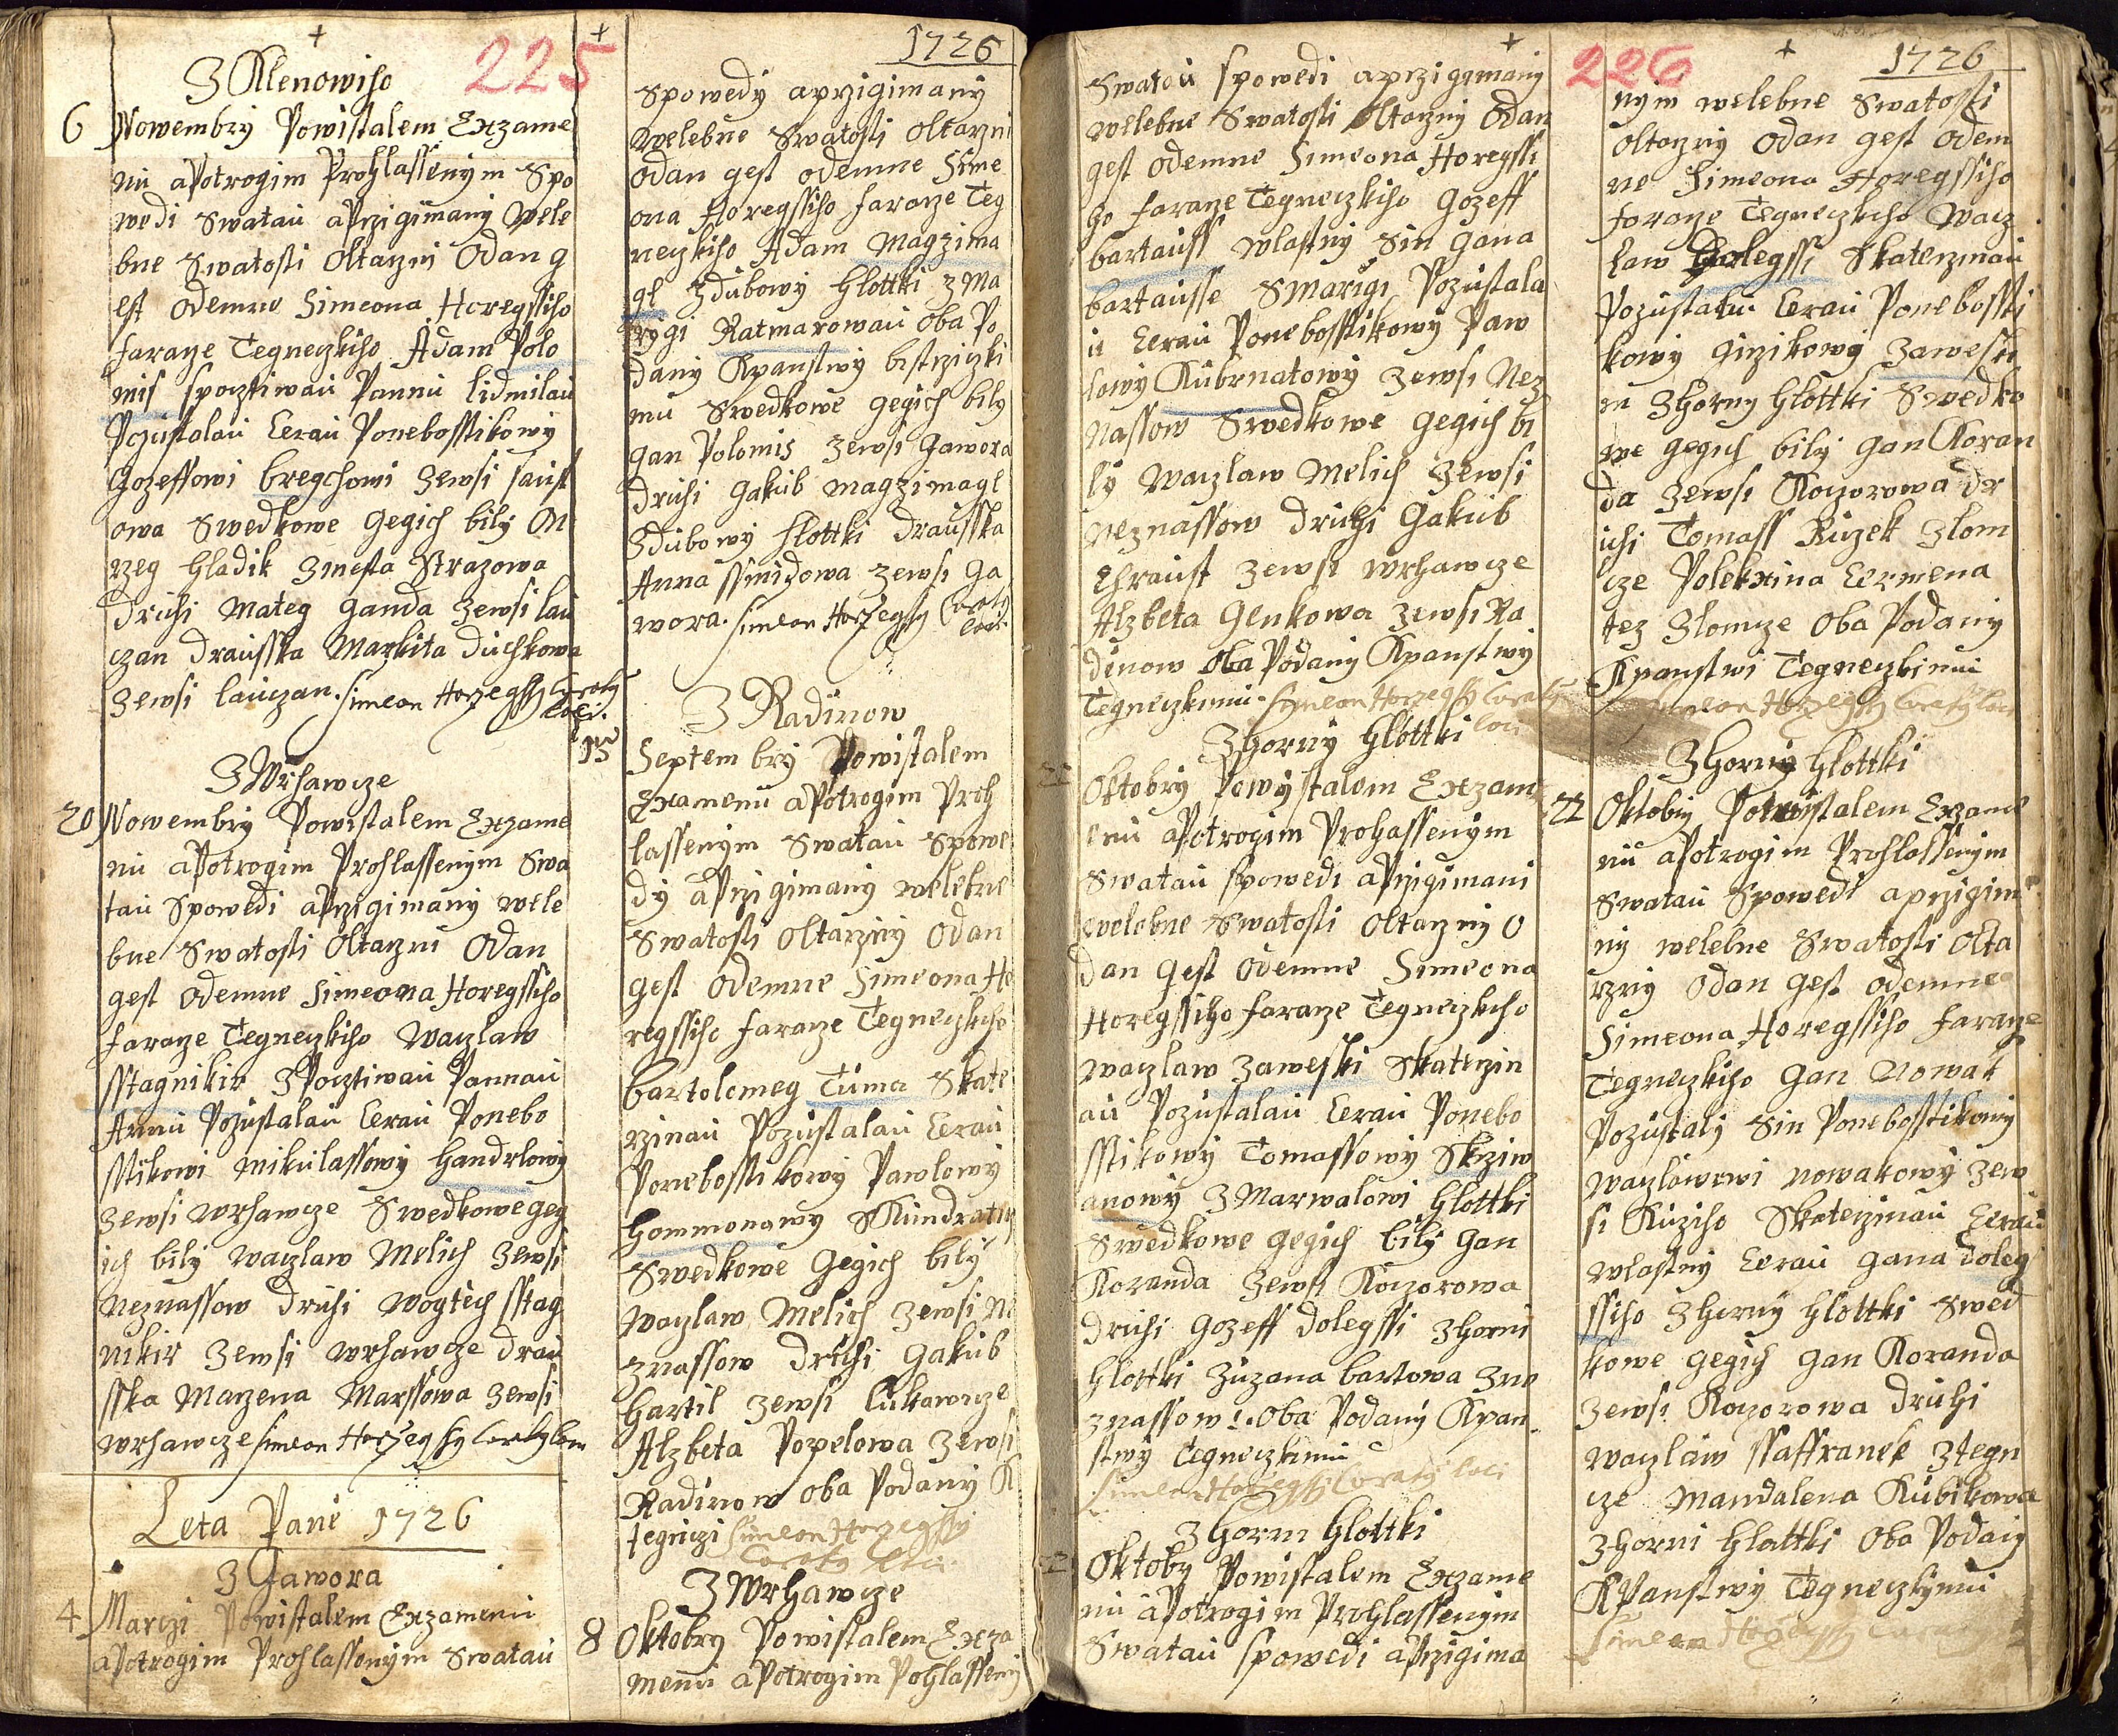 225
Z Klenowiho
6 Nowembry Powistalem Exzame
nu aPotrogim Prohlassenym Spo
wedi Swatau aPrzigimany Wele
bne Swatosti Oltarzni Odan g
est Odemne Simeona Horegssiho
Fararze Tegneczkiho Adam Polo
mis spocztiwau Pannu lidmilau
Pozustalau Cerau Ponebosstikowy
Gozeffowi bregchowi Zewsi saust
owa Swedkowe Gegich bily On
rzeg Hladik Zmesta Strazowa
Druhi Mateg Ganda Zewsi lau
czan Drausska Markita Duchkowa
Zewsi lauczan. Simeon Horzegssy Curaty
loci.
Z Wrhawcze
20 Nowembry Powistalem Exzame
nu aPotrogim Prohlassenym Swa
tau Spowedi aPrzigimany wele
bne Swatosti Oltarzni Odan
gest Odemne Simeona Horegssiho
Faraze Tegneczkiho Waczlaw
sstagnikir ZPocztiwau Pannau
Annu Pozustalau Cerau Ponebo
sstikowi mikulassowy Handrlowy
Zewsi wrhawcze Swedkowe geg
ich bily Waczlaw Melich Zewsi
Neznassow druhi Wogtech sstag
nikir Zewsi wrhawcze drau
sska Marzena Marssowa Zewsi
wrhawcze Simeon Horzegssy Curaty loci
Leta Pane 1726
Z Jawora
4 Marczi Powistalem Exzamenu
aPotrogim Prohlassenym Swatau
1726
Spowedy aprzigimany
Welebne Swatosti Oltarzni
Odan gest Odemne Sime
ona Horegssiho Fararze Teg
neczkiho Adam Magzima
gl Zdubowy Hlottki z Ma
rygi Ratmarowau Oba Po
dany Kpanstwy bistrziczki
mu Swedkowe gegich bily
Gan Polomis Zewsi Gawora
druhi Gakub magzimagl
Zdubowy Hlottki Drausska
Anna ssmidowa Zewsi Ga
wora. Simeon Horzegssy Curaty
loci.
Z Radinow
15 Septembry Powistalem
Examenu aPotrogim Proh
lassenym Swatau Spowe
dy aPrzigimany welebne
Swatosti Oltarzny Odan
gest Odemne Simeona Ho
regssiho Fararze Tegneczkiho
bartolomeg Tuma Skate
rzinau Pozustalau Cerau
Ponebosstikowy Pawlowy
Hommonawy SKundratiz
Swedkowe Gegich bily
Waczlaw Melich Zewsi Ne
znassow druhi Gakub
Hartil Zewsi lukawicze
Alzbeta Popelowa Zewsi
Radinow oba Podany K
tegniczi Simeon Horzegssy
Curaty loci
Z Wrhawcze
8 Oktobry Powistalem Exza
menu aPotrogim Pohlasseny
Swatau spowedi aprzigymany
welebne Swatosti Oltarzny Odan
gest Odemne Simeona Horegssi
ho Fararze Tegneczkiho Gozeff
bartauss wlastny Sin Gana
bartausse Smarigi Pozustala
u Cerau Ponebosstikowy Paw
lowy Kubrnatowy Zewsi Nez
nassow Swedkowe gegich bi
ly Waczlaw Melich Zewsi
neznassow druhi Gakub
Chraust Zewsi wrhawcze
Alzbeta Genkowa Zewsi Ra
dinow Oba Podany Kpanstwy
Tegneczkimu. Simeon Horzegssy Curaty
loci
Zhorny Hlottki
Oktobry Powystalem Exzam
enu aPotrogim Prohassenym
Swatau spowedi aPrzigimani
welebne Swatosti Oltarzny O
dan gest Odemne Simeona
Horegssiho Fararze Tegneczkiho
Waczlaw Zaweski Skaterzin
au Pozustalau Cerau Ponebo
sstikowy Tomassowy Skrziw
anowy Z Marwalowi Hlottki
Swedkowe gegich bily Gan
Koranda Zewsi Koczorowa
druhi Gozeff dolegssi Zhorni
Hlottki Zuzana bartowa Zne
znassow. Oba Podany Kpan
stwy Tegneczkimu
Simeon Horzegssi Curaty loci
Zhorni Hlottki
Oktoby Powistalem Exzame
nu aPotrogim Prohlassenym
Swatau spowedi aPrzigima
226
1726
nym welebne Swatosti
Oltarzny Odan gest Odem
ne Simeona Horegssiho
Fararze Tegneczkiho Wacz
law Dolegssi Skaterzinau
Pozustalu Cerau Ponebossti
kowy Girzikowy Zaweski
m Zhorny Hlottki Swedko
we gegich bily Gan Koran
da Zewsi Koczorowa dr
uhi Tomass Ruzek Zlom
cze Polekxina Cermena
tez Zlomcze Oba Podany
Kpanstwi Tegneczkimu
Simeon Horzegssy Curaty loci
Zhorny Hlottki
22 Oktobry Potwistalem Exzame
nu aPotrogim Prohlassenym
Swatau Spowedi aprzigim
ny welebne Swatosti Olta
rzny Odan gest Odemne
Simeona Horegssiho Fararze
Tegneczkiho Gan Nowak
Pozustaly Sin Ponebosstikowy
Waczlawowi Nowakowy Zew
si Kuziho Skaterzinau Cerau
wlastny Cerau Gana doleg
ssiho Zhorny Hlottki Swed
kowe gegich Gan Koranda
Zewsi Koczorowa druhi
Waczlaw ssaffranek Ztegn
cze Mandalena Kubikowa
Zhorni Hlottki Oba Podany
KPanstwy Tegneczkymu
Simeon Horzegssy Curaty